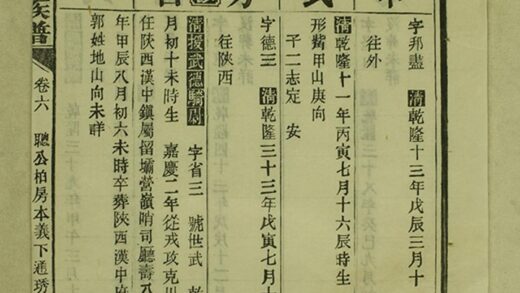 字邦盡　清乾隆十三年戊辰三月十
往外
清乾隆十一年丙寅七月十六辰時生
形觜甲山庚向
子二志定　安
字德三　清乾隆三十三年戊寅七月
往陝西
清授武德騎尉　字省三　號世武
月初十未時生　嘉慶二年從戎攻克川
任陝西漢中鎮屬留壩營嶺哨司廳壽八
年甲辰八月初六未時卒葬陝西漢中府
郭姓地山向未詳
族譜　卷六　聰公柏房本義下通琇